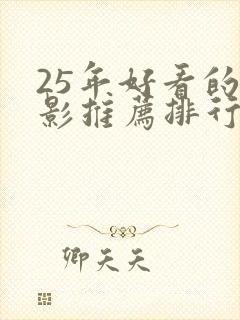 25年好看的
影推薦排行
卿天天